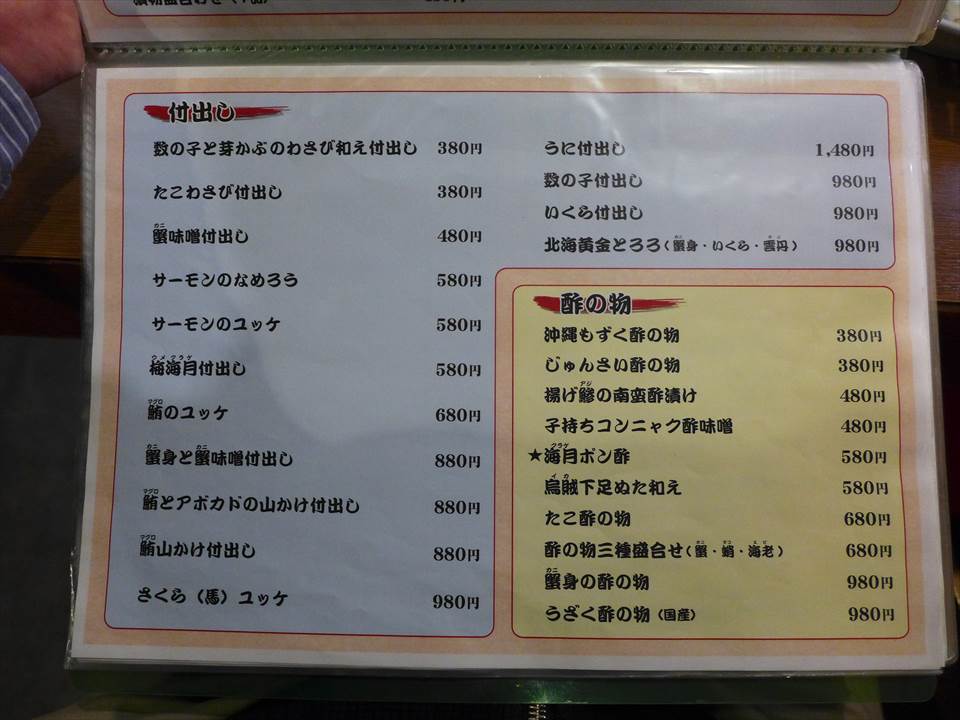 付出し
数の子と芽かぶのわさび和え付出し 380円
たこわさび付出し 380円
蟹味噌付出し 480円
サーモンのなめろう 580円
サーモンのユッケ 580円
梅海月付出し 580円
鮪のユッケ 680円
蟹身と蟹味噌付出し 880円
鮪とアボカドの山かけ付出し 880円
鮪山かけ付出し 880円
さくら(馬)ユッケ 980円
うに付出し 1,480円
数の子付出し 980円
いくら付出し 980円
北海黄金とろろ(蟹身・いくら・雲丹) 980円
酢の物
沖縄もずく酢の物 380円
じゅんさい酢の物 380円
揚げ鯵の南蛮酢漬け 480円
子持ちコンニャク酢味噌 480円
★海月ポン酢 580円
烏賊下足ぬた和え 580円
たこ酢の物 680円
酢の物三種盛合せ(蟹・蛸・海老) 680円
蟹身の酢の物 980円
うざく酢の物(国産) 980円